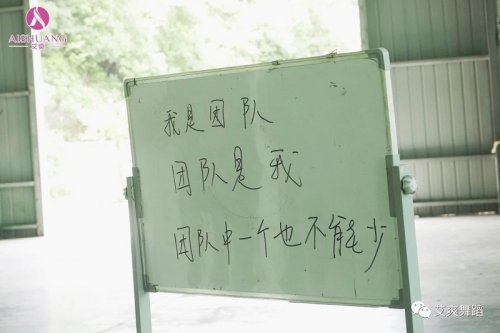 AISHUANG
艾爽
我是团队
团队是我
团队中一个也不能少
艾爽舞蹈